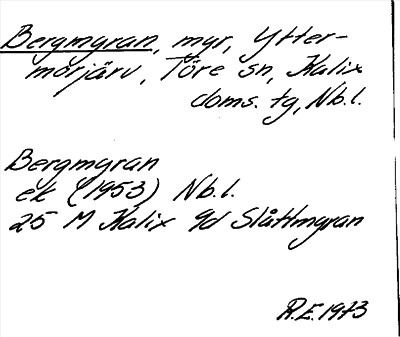 Bergmyran, myr, Ytter-
morjärv, Töre sn, Kalix
doms. tg, Nb.l.
Bergmyran
ek (1953) Nb.l.
25 M Kalix 9d Slåttmyran
R.E. 1973